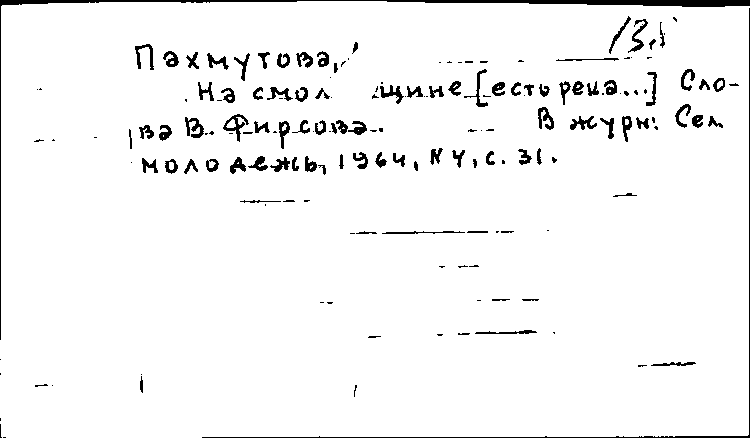 13.
Пахмутова,
На смол щине [есть река...] Сло-
ва В. Фирсова. В журн: Сел
молодежь, 1964, N 4, с. 31.